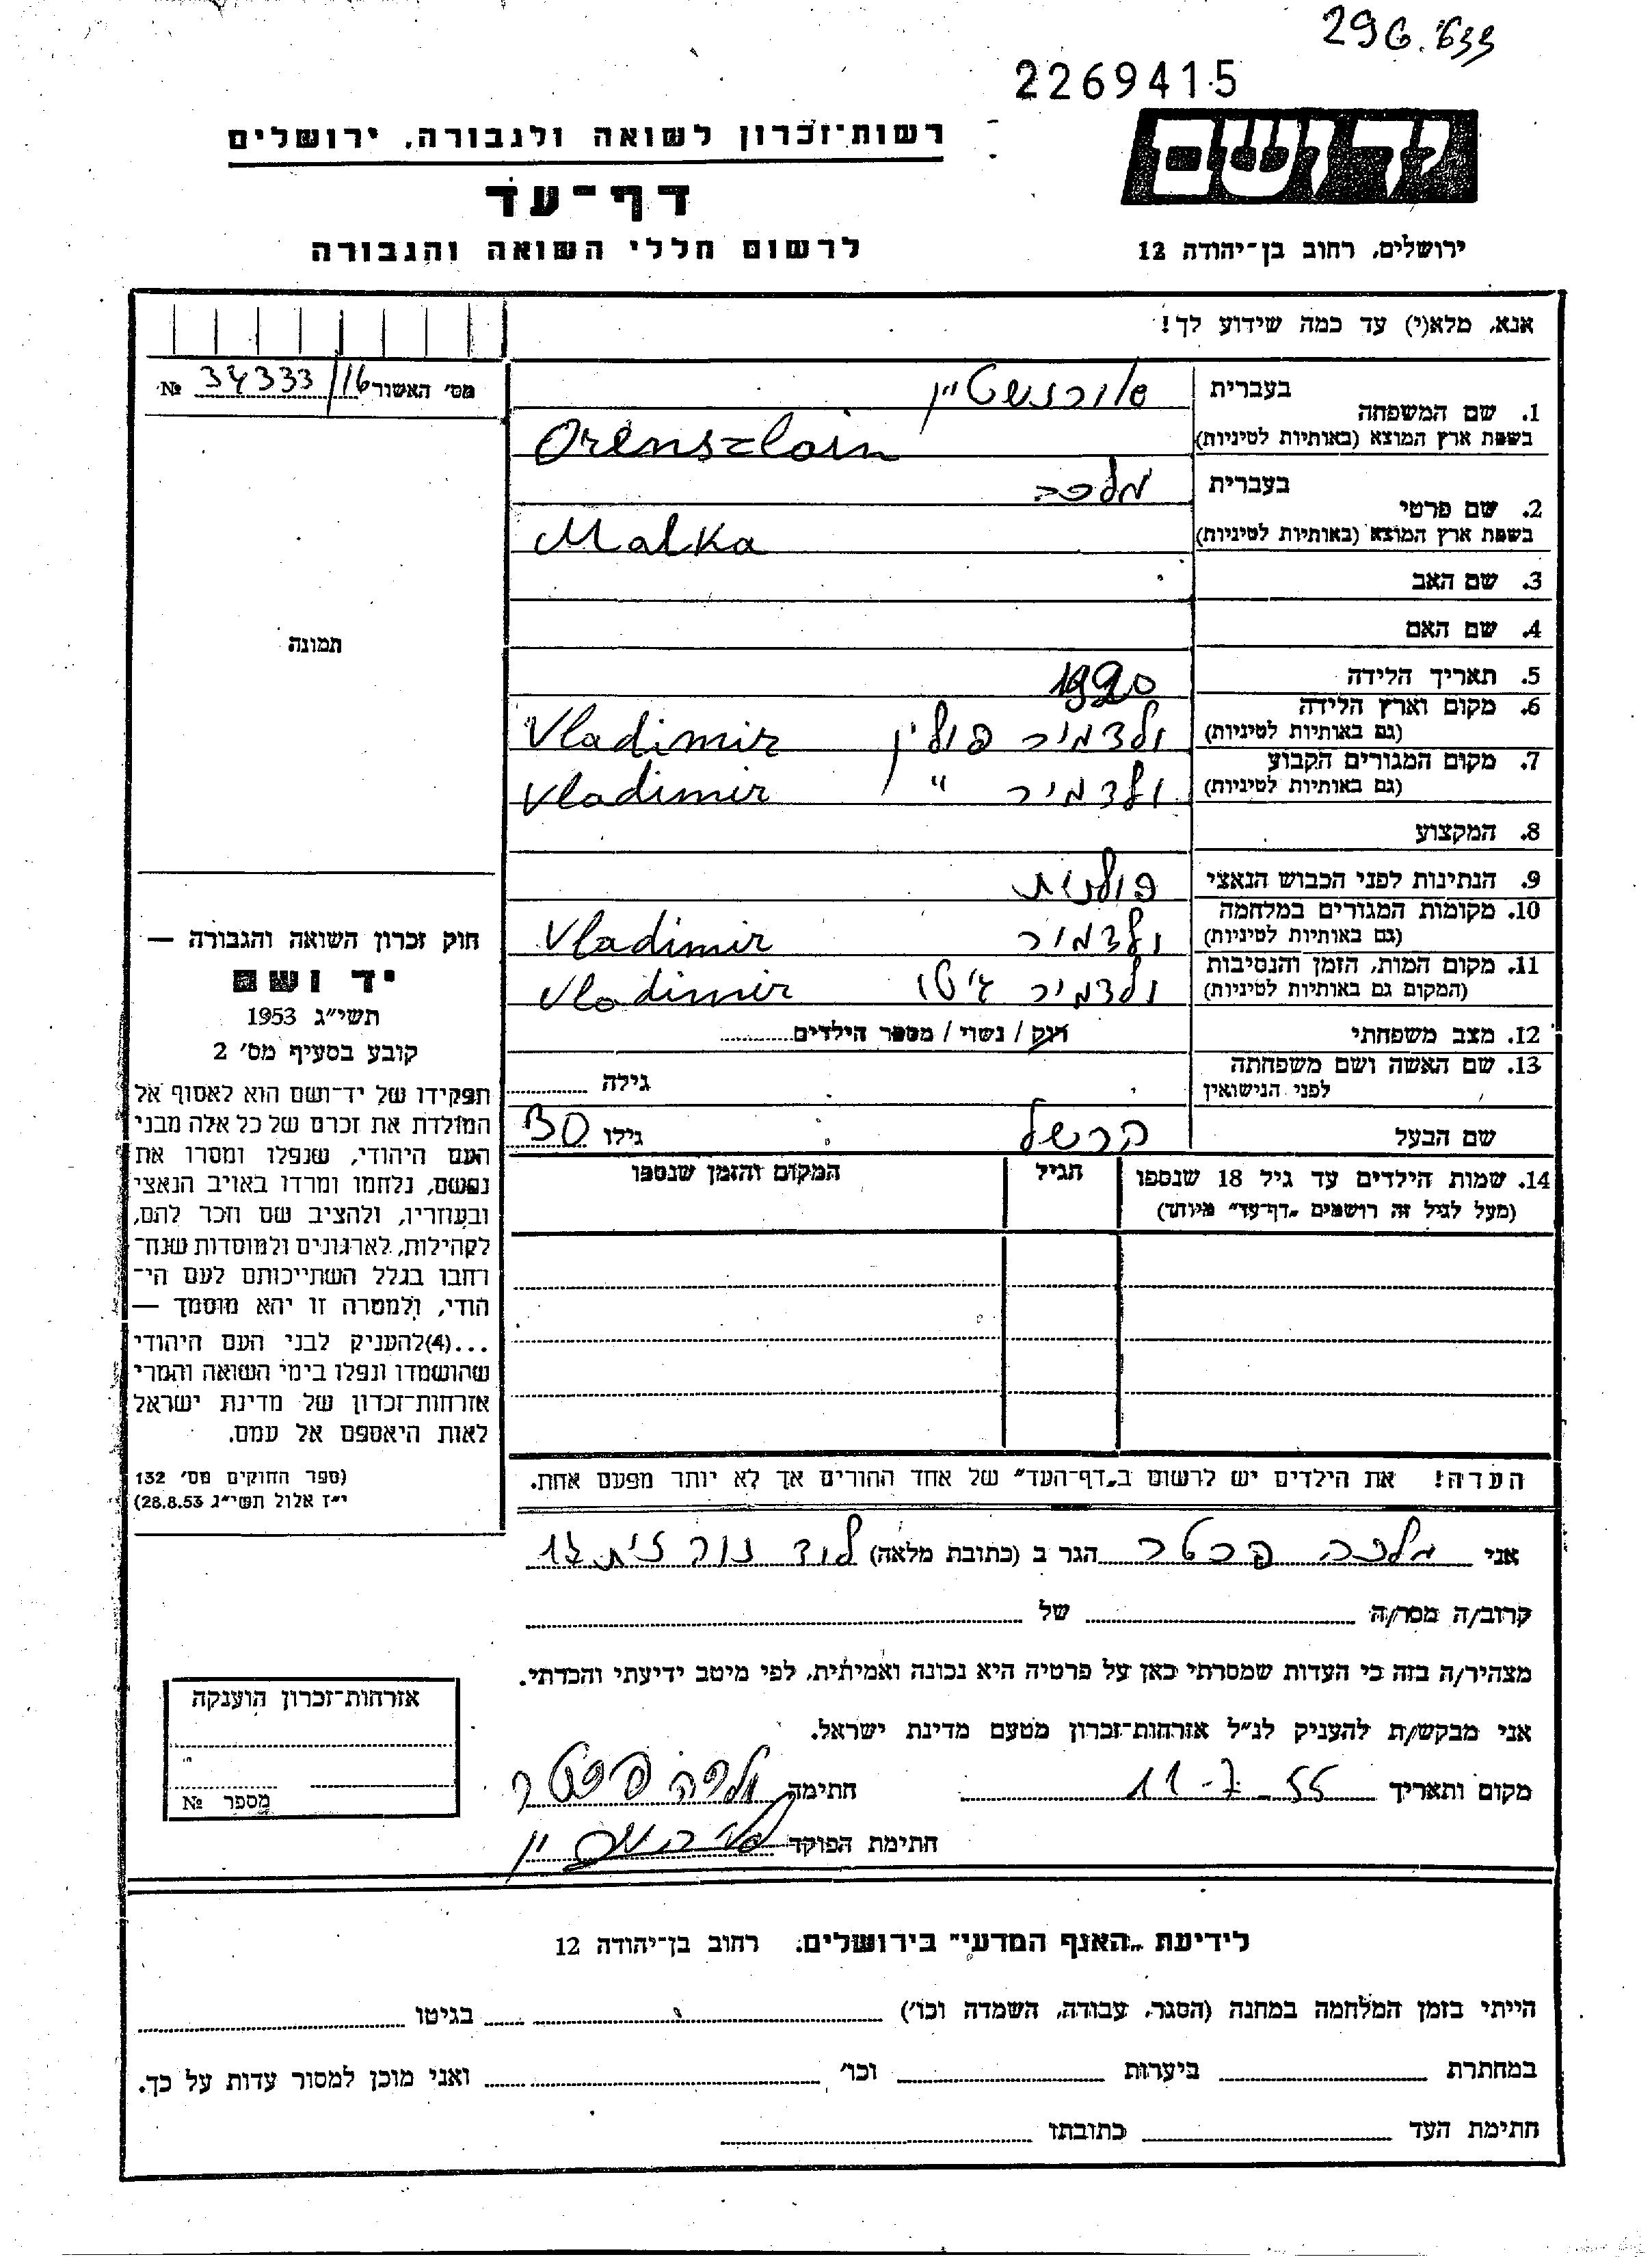 296.633
2269415
ידושם
רשות־זכרון לשואה ולגבורה, ירושלים
דף־עד
לרשום חללי השואה והגבורה
ירושלים, רחוב בן־יהודה 12
אנא, מלא(י) עד כמה שידוע לך!
מס' האשור 34333/16 №
1. שם המשפחה
בעברית אורנשטיין
בשפת ארץ המוצא (באותיות לטיניות) Orensztein
2. שם פרטי
בעברית מלכה
בשפת ארץ המוצא (באותיות לטיניות) Malka
3. שם האב
4. שם האם
5. תאריך הלידה 1920
6. מקום וארץ הלידה
(גם באותיות לטיניות) ולדמיר פולין Vladimir
7. מקום המגורים הקבוע
(גם באותיות לטיניות) ולדמיר " Vladimir
8. המקצוע
9. הנתינות לפני הכבוש הנאצי פולנית
10. מקומות המגורים במלחמה
(גם באותיות לטיניות) ולדמיר Vladimir
11. מקום המות, הזמן והנסיבות
(המקום גם באותיות לטיניות) ולדמיר גיטו Vladimir
12. מצב משפחתי רווק / נשוי / מספר הילדים
13. שם האשה ושם משפחתה
לפני הנישואין גילה
שם הבעל הרשל גילו 30
14. שמות הילדים עד גיל 18 שנספו הגיל המקום והזמן שנספו
(מעל לגיל זה רושמים „דף־עד" מיוחד)
תמונה
חוק זכרון השואה והגבורה —
יד ושם
תשי"ג 1953
קובע בסעיף מס' 2
תפקידו של יד־ושם הוא לאסוף אל
המולדת את זכרם של כל אלה מבני
העם היהודי, שנפלו ומסרו את
נפשם, נלחמו ומרדו באויב הנאצי
ובעוזריו, ולהציב שם וזכר להם,
לקהילות, לארגונים ולמוסדות שנח־
רחבו בגלל השתייכותם לעם הי־
הודי, ולמטרה זו יהא מוסמך —
...(4)להעניק לבני העם היהודי
שהושמדו ונפלו בימי השואה והמרי
אזרחות־זכרון של מדינת ישראל
לאות היאספם אל עמם.
(ספר החוקים מס' 132
י"ז אלול תשי"ג 28.8.53)
הערה! את הילדים יש לרשום ב„דף־העד" של אחד ההורים אך לא יותר מפעם אחת.
אני מלכה פכטר הגר ב (כתובת מלאה) לוד
קרוב/ה מסר/ה של
מצהיר/ה בזה כי העדות שמסרתי כאן על פרטיה היא נכונה ואמיתית, לפי מיטב ידיעתי והכרתי.
אני מבקש/ת להעניק לנ"ל אזרחות־זכרון מטעם מדינת ישראל.
מקום ותאריך 11-7-55 חתימה
חתימת הפוקד
אזרחות־זכרון הוענקה
מספר №
לידיעת „האגף המדעי" בירושלים, רחוב בן־יהודה 12
הייתי בזמן המלחמה במחנה (הסגר, עבודה, השמדה וכו') בגיטו
במחתרת ביערות וכו' ואני מוכן למסור עדות על כך.
חתימת העד כתובתו